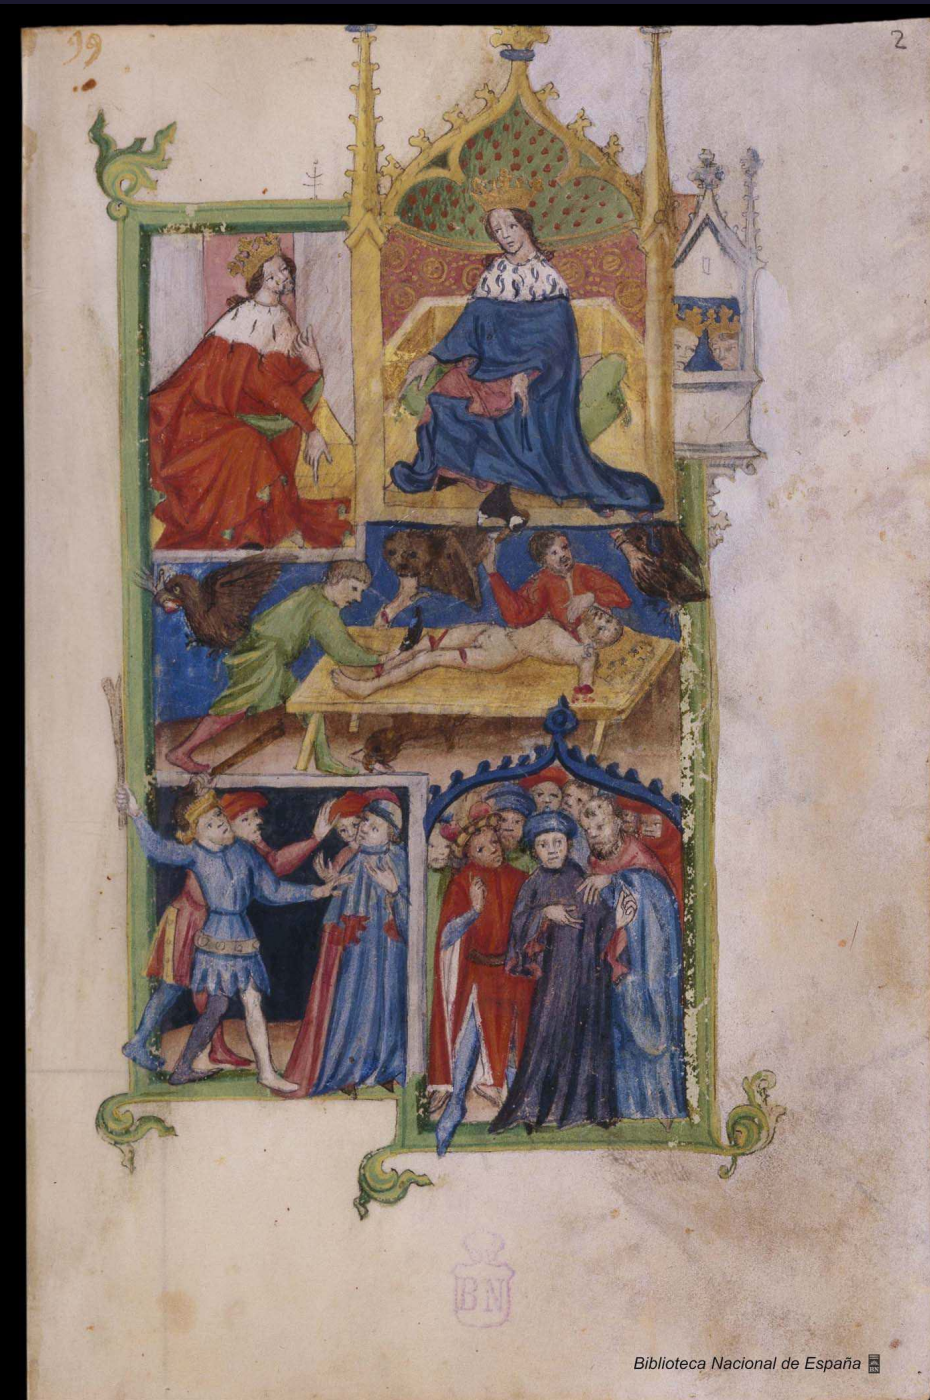 99
2
BN
Biblioteca Nacional de España